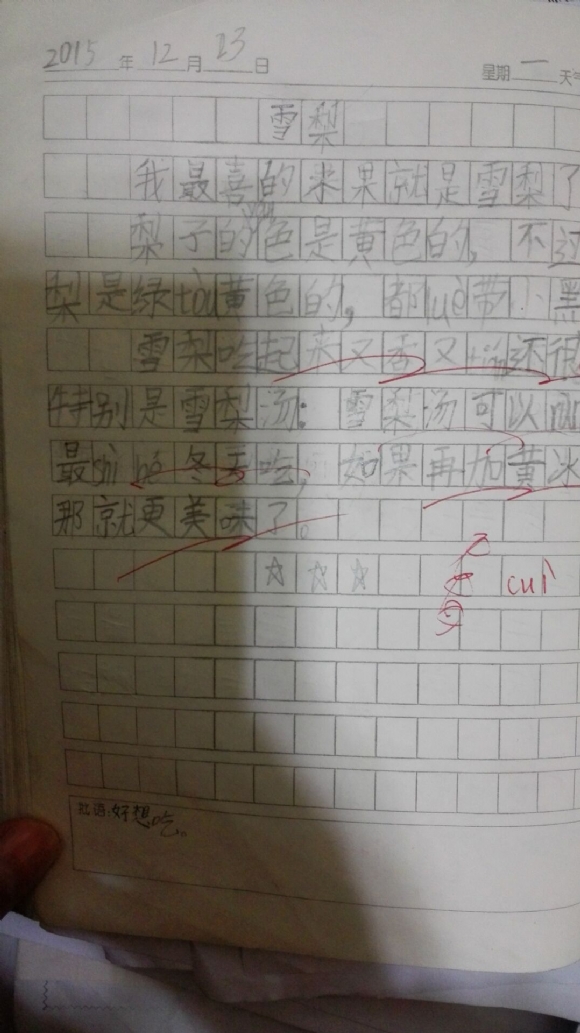 2015 年 12 月 23 日 星期 一 天气
雪梨
我最喜的水果就是雪梨了
梨子的色是黄色的，不过
梨是绿tòu黄色的，都luè带小黑
雪梨吃起来又香又 还很
特别是雪梨汤：雪梨汤可以
最shì hé冬天吃，如果再加黄冰
那就更美味了。
☆ ☆ ☆
cuì
批语：好想吃。